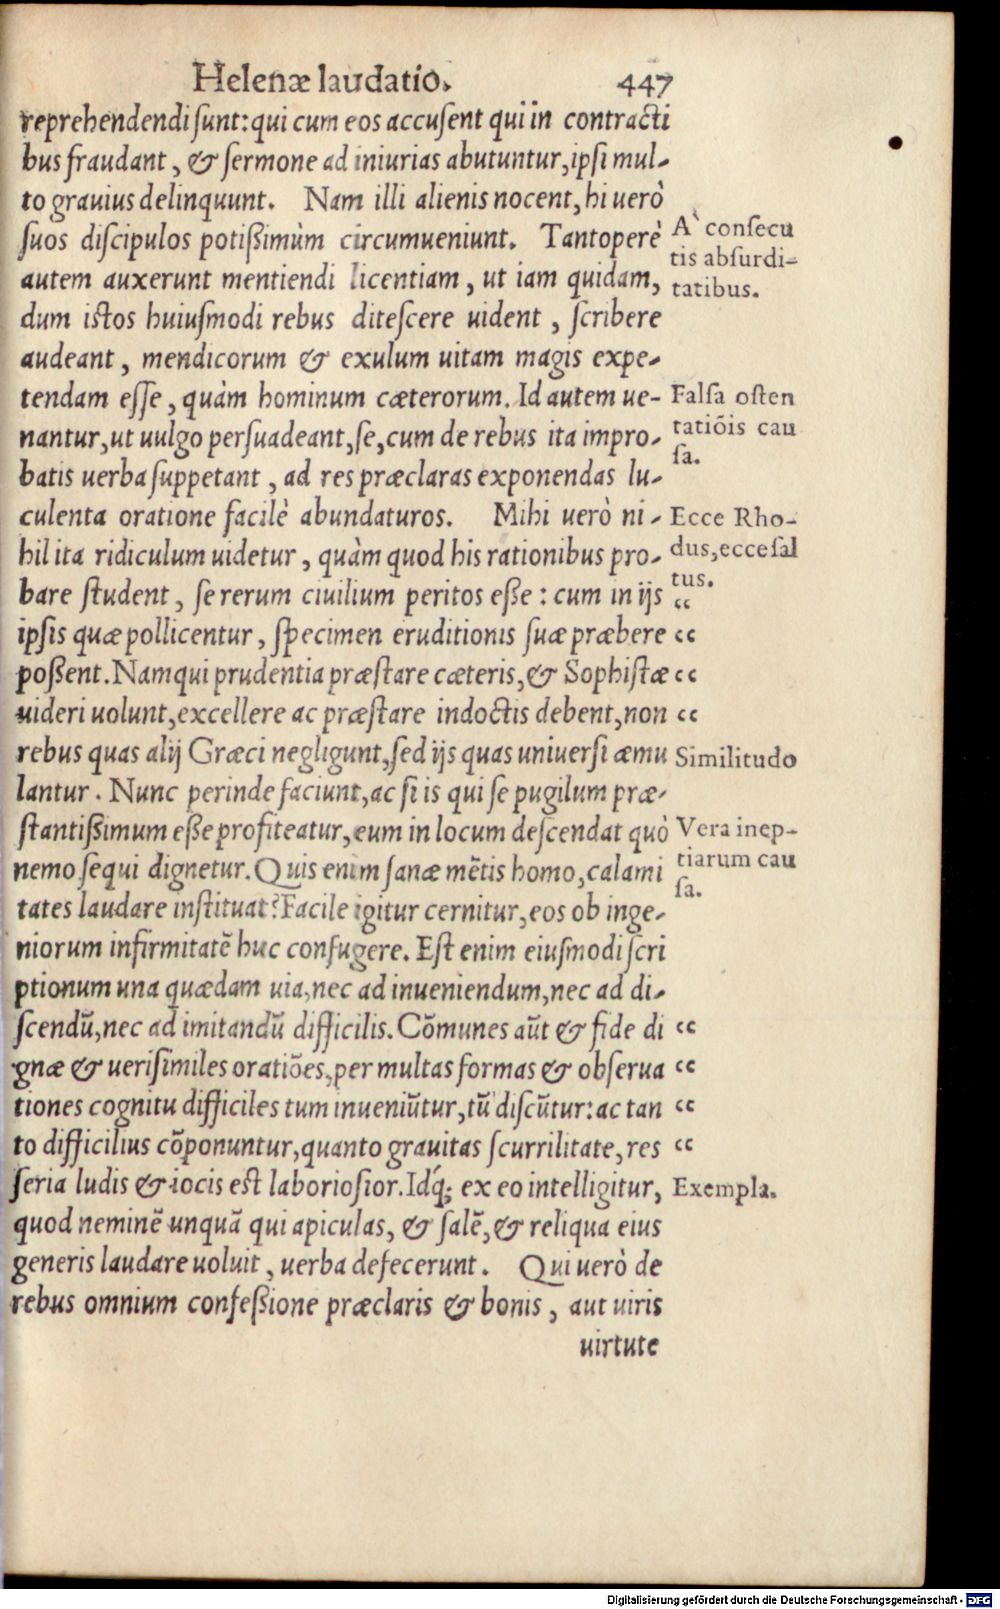 Helenæ laudatio. 447
reprehendendi sunt: qui cum eos accusent qui in contracti
bus fraudant, & sermone ad iniurias abutuntur, ipsi mul-
to grauius delinquunt. Nam illi alienis nocent, hi uerò
suos discipulos potißimùm circumueniunt. Tantoperè
autem auxerunt mentiendi licentiam, ut iam quidam,
dum istos huiusmodi rebus ditescere uident, scribere
audeant, mendicorum & exulum uitam magis expe-
tendam esse, quàm hominum cæterorum. Id autem ue-
nantur, ut uulgo persuadeant, se, cum de rebus ita impro-
batis uerba suppetant, ad res præclaras exponendas lu-
culenta oratione facilè abundaturos. Mihi uerò ni-
hil ita ridiculum uidetur, quàm quod his rationibus pro-
bare student, se rerum ciuilium peritos eße: cum in ijs
ipsis quæ pollicentur, specimen eruditionis suæ præbere
poßent. Nam qui prudentia præstare cæteris, & Sophistæ
uideri uolunt, excellere ac præstare indoctis debent, non
rebus quas alij Græci negligunt, sed ijs quas uniuersi æmu
lantur. Nunc perinde faciunt, ac si is qui se pugilum præ-
stantißimum eße profiteatur, eum in locum descendat quò
nemo sequi dignetur. Quis enim sanæ mẽtis homo, calami
tates laudare instituat? Facile igitur cernitur, eos ob inge-
niorum infirmitatẽ huc confugere. Est enim eiusmodi scri
ptionum una quædam uia, nec ad inueniendum, nec ad di-
scendũ, nec ad imitandũ difficilis. Cõmunes aũt & fide di
gnæ & uerisimiles oratiões, per multas formas & obserua
tiones cognitu difficiles tum inueniũtur, tũ discũtur: ac tan
to difficilius cõponuntur, quanto grauitas scurrilitate, res
seria ludis & iocis est laboriosior. Idq́; ex eo intelligitur,
quod neminẽ unquã qui apiculas, & salẽ, & reliqua eius
generis laudare uoluit, uerba defecerunt. Qui uerò de
rebus omnium confeßione præclaris & bonis, aut uiris
uirtute
A` consecu
tis absurdi-
tatibus.
Falsa osten
tatiõis cau
sa.
Ecce Rho-
dus, ecce sal
tus.
“
“
“
“
Similitudo
Vera inep-
tiarum cau
sa.
“
“
“
“
Exempla.
Digitalisierung gefördert durch die Deutsche Forschungsgemeinschaft - DFG